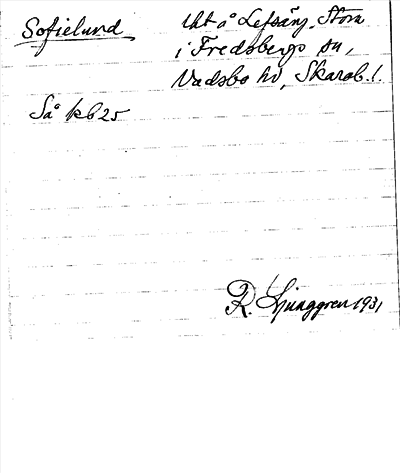 Sofielund
Uht å Lefsäng, Stora
i Fredsbergs sn,
Vadsbo hd, Skarab. l.
Så kb 25
R. Ljunggren 1931